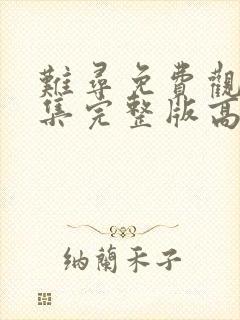 難尋免費觀
集完整版高
纳蘭禾子